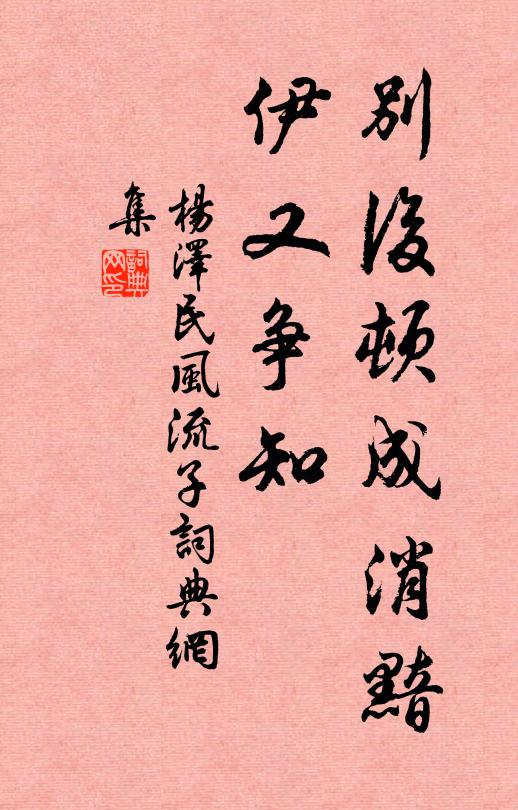 別後頓成消黯
伊又争知
楊澤民風流子詞典網
集
詞典網印